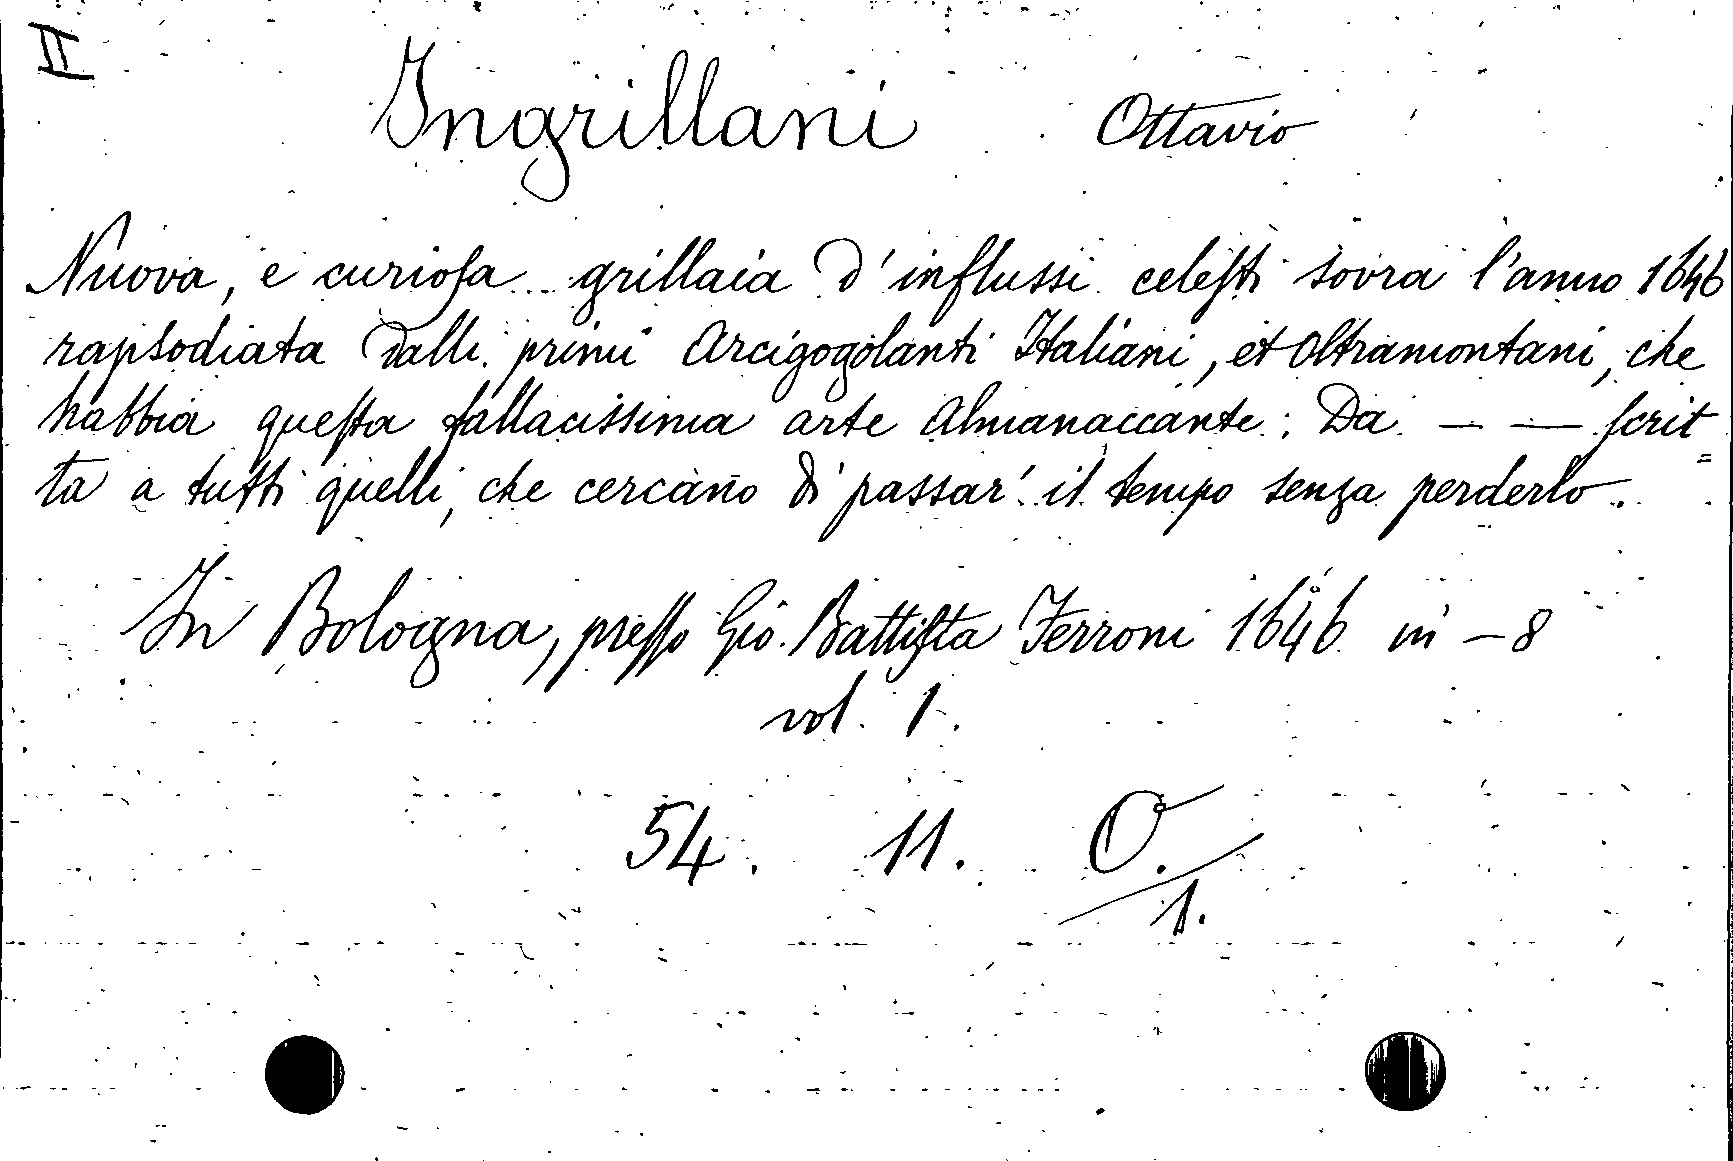 II
Ingrillani Ottavio
Nuova, e curiosa grillaia d'influssi celesti sovra l'anno 1646
rapsodiata dalli primi Arcigogolanti Italiani, et Oltramontani, che
habbia questa fallacissima arte Almanaccante: Da — — scrit=
ta a tutti quelli, che cercano di passar' il tempo senza perderlo.
In Bologna, presso Gio. Battista Ferroni 1646 in - 8°
vol. 1.
54. 11. O.
1.